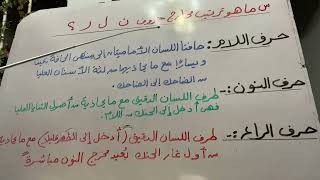 س ما هو ترتيب مخارج حروف ن ل ر ؟
حرف اللام :- حافتا اللسان الأماميتان إلى منتهى الحافة يمينا
ويسارا مع ما يحاذيهما من لثة الأسنان العليا
من الضاحك إلى الضاحك.
حرف النون :- طرف اللسان الدقيق مع ما يحاذيه من أصول الثنايا العليا
فهي أدخل إلى الحنك من اللام.
حرف الراء :- طرف اللسان الدقيق (أدخل إلى الظهر قليلا) مع ما يحاذيه
من أول غار الحنك بعيد مخرج النون مباشرة